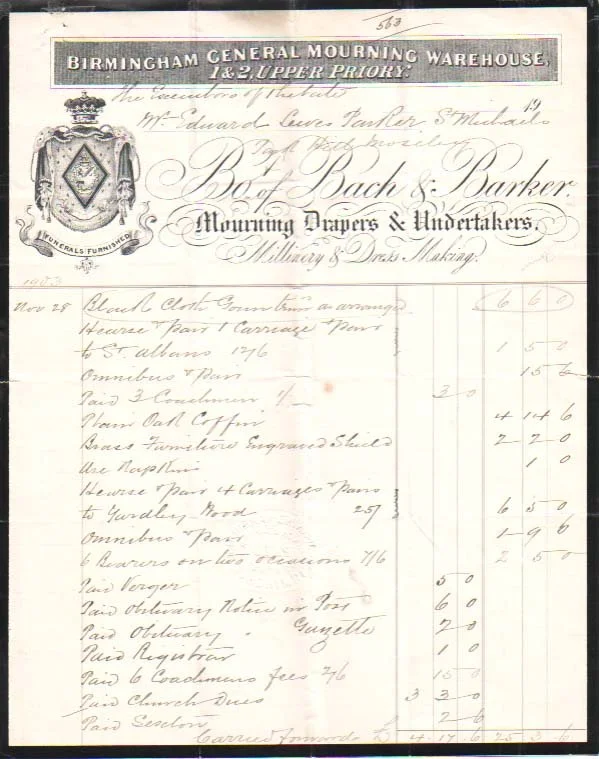 563
BIRMINGHAM GENERAL MOURNING WAREHOUSE,
1 & 2, UPPER PRIORY.
19
The Executors of the late
Mr Edward Lewis Parker St Michaels
Hill Moseley
Bo. of Bach & Barker.
Mourning Drapers & Undertakers.
Millinery & Dress Making.
FUNERALS FURNISHED
1903
Nov 28 Black Cloth Gown trim as arranged 6 6 0
Hearse & Pair 1 Carriage & Pair
to St Albans 12/6 1 5 0
Omnibus & Pair 15 6
Paid 3 Coachmen 1/- 3 0
Plain Oak Coffin 4 14 6
Brass Furniture Engraved Shield 2 2 0
Use Napkins 1 0
Hearse & Pair 4 Carriages & Pairs
to Yardley Wood 25/ 6 5 0
Omnibus & Pair 1 9 6
6 Bearers on two occasions 7/6 2 5 0
Paid Verger 5 0
Paid Obituary Notice in Post 6 0
Paid Obituary " Gazette 2 0
Paid Registrar 1 0
Paid 6 Coachmans fees 2/6 15 0
Paid Church Dues 3 3 0
Paid Sexton 2 6
Carried forwards £ 4 17 6 25 3 6